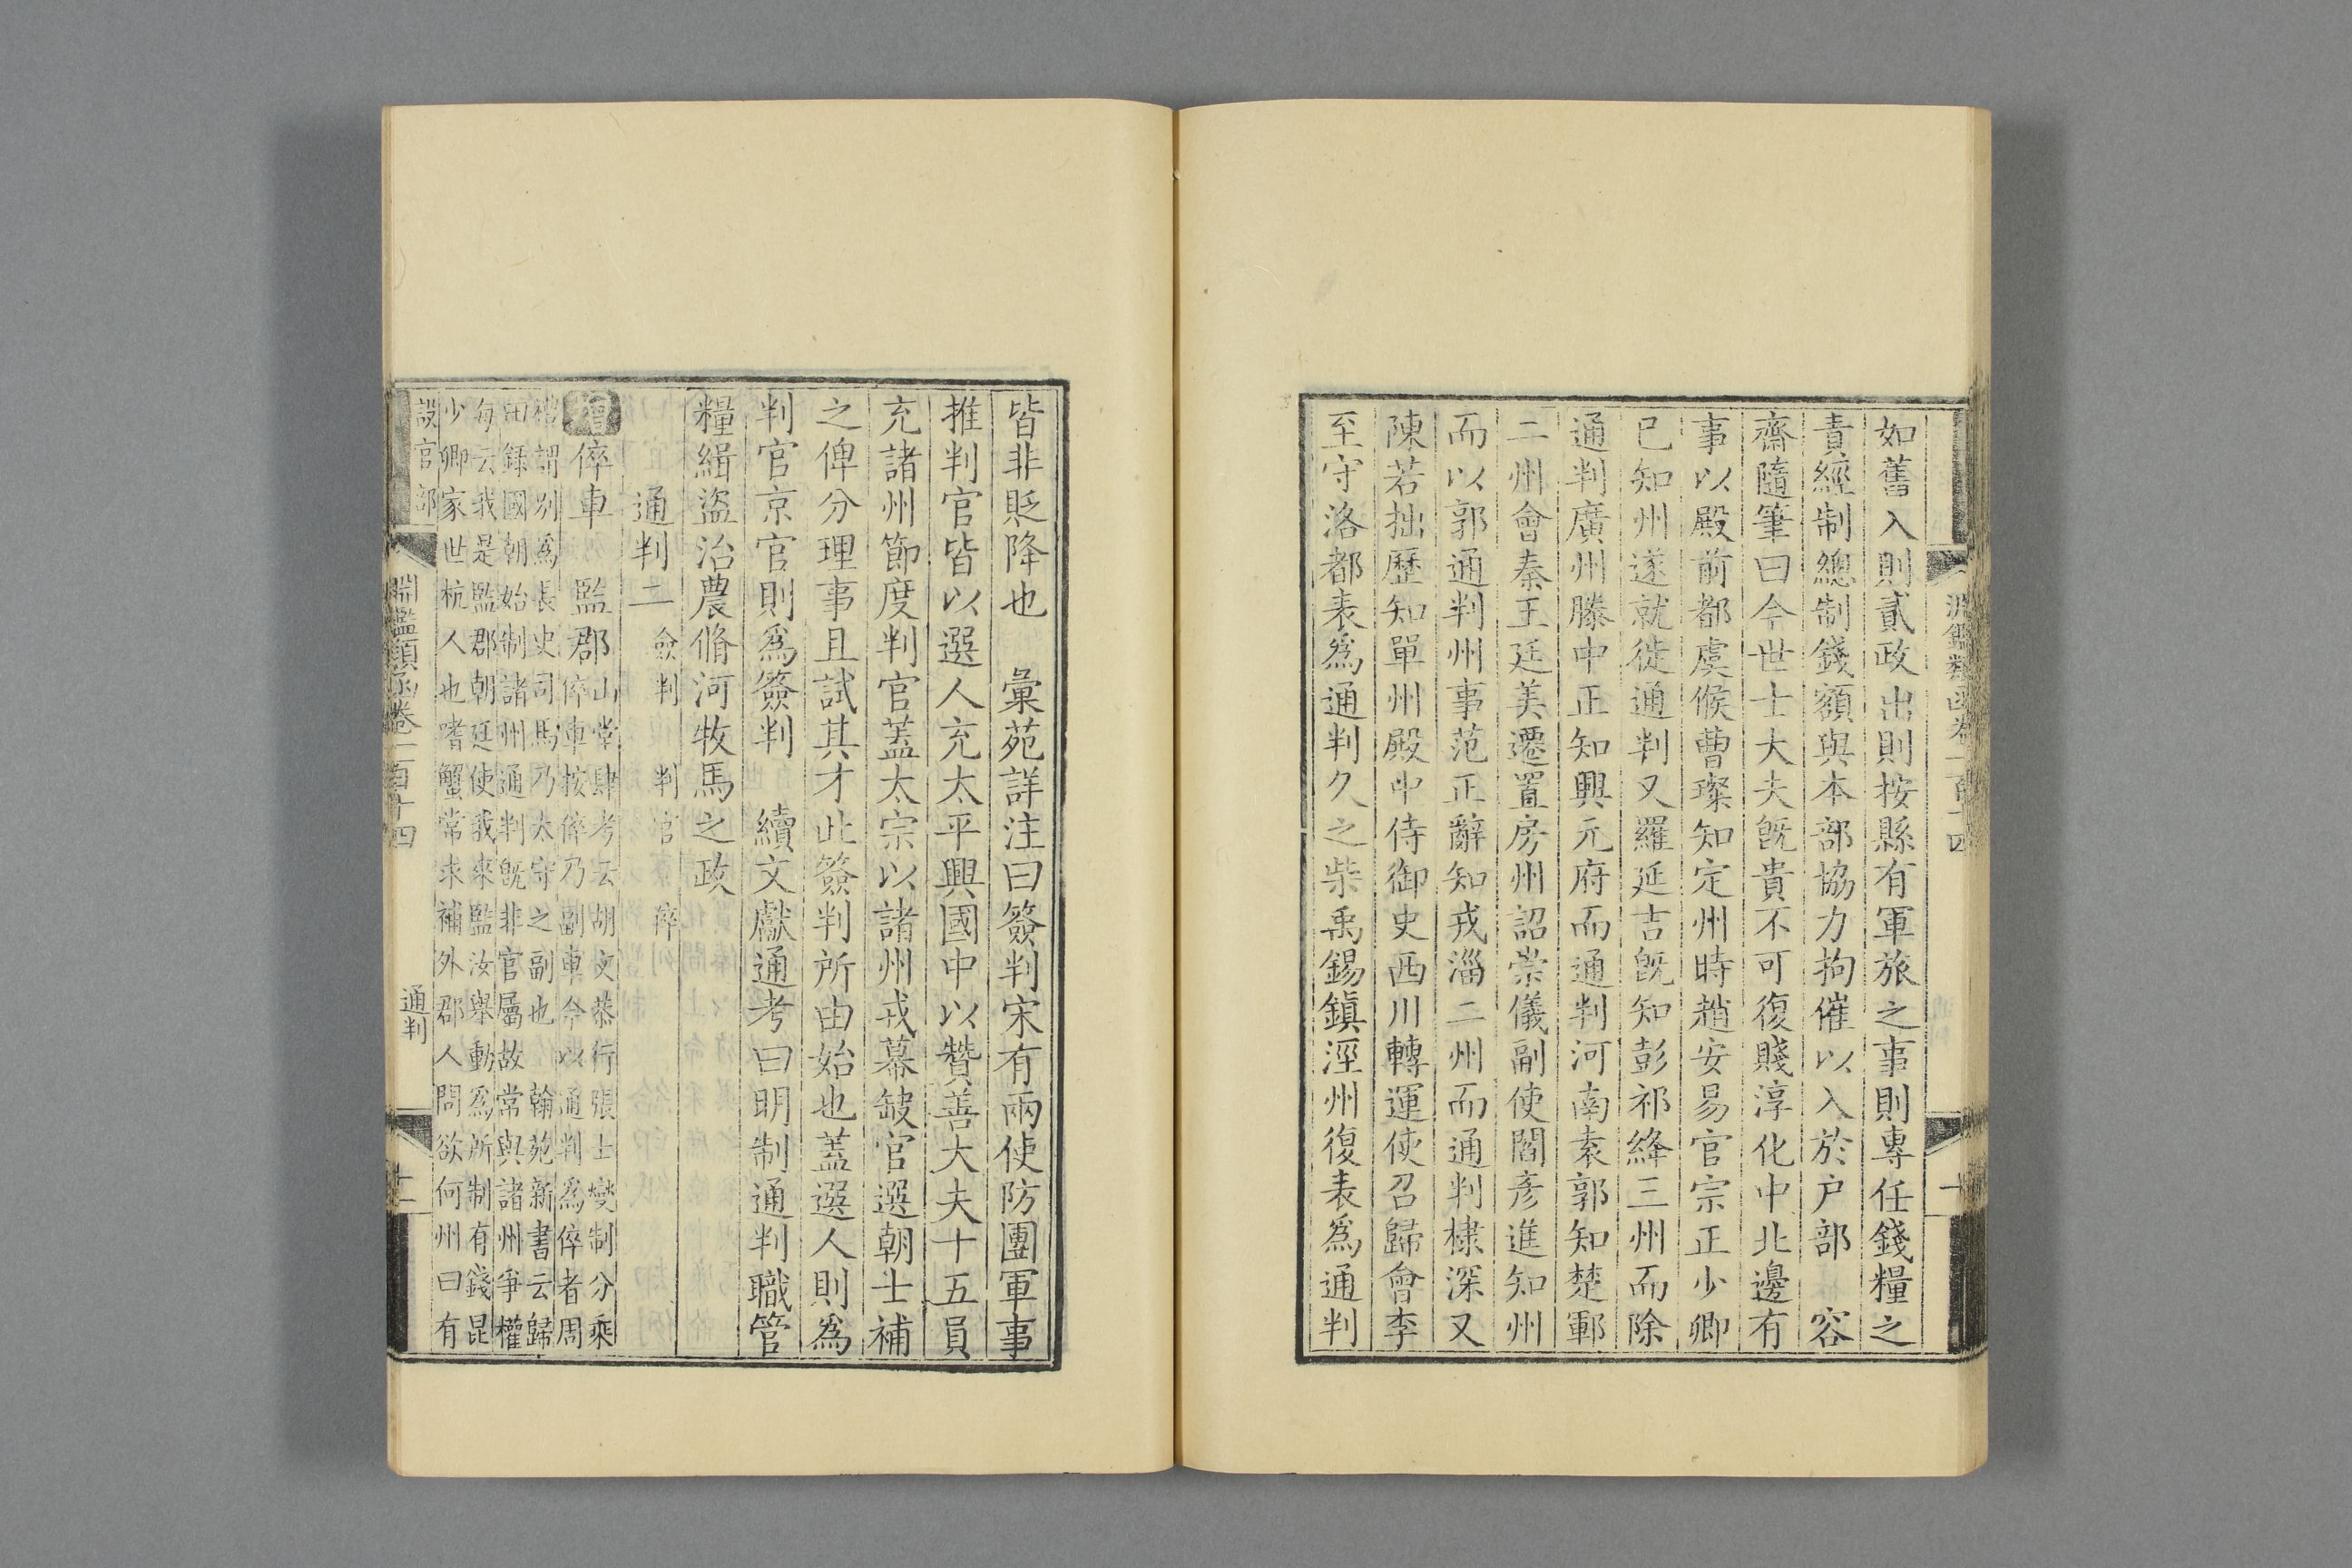 如舊入則貳政出則按縣有軍旅之事則專任錢糧之
責經制總制錢額與本部協力拘催以入於户部　容
齋隨筆曰今世士大夫旣貴不可復賤淳化中北邊有
事以殿前都虞候曹璨知定州時趙安易官宗正少卿
已知州遂就徙通判又羅延吉旣知彭祁絳三州而除
通判廣州滕中正知興元府而通判河南袁郭知楚鄆
二州會秦王廷美遷置房州詔崇儀副使閻彦進知州
而以郭通判州事范正辭知戎淄二州而通判棣深又
陳若拙歷知單州殿中侍御史西川轉運使召歸會李
至守洛都表爲通判久之柴禹錫鎮涇州復表爲通判
皆非貶降也　彙苑詳注曰簽判宋有兩使防團軍事
推判官皆以選人充太平興國中以贊善大夫十五員
充諸州節度判官蓋太宗以諸州戎幕缺官選朝士補
之俾分理事且試其才此簽判所由始也蓋選人則爲
判官京官則爲簽判　續文獻通考曰明制通判職管
糧緝盜治農脩河牧馬之政
通判二　僉判　判官　倅
增倅車　監郡　山堂肆考云胡文恭行張士燮制分乘
倅車按倅乃副車今以通判爲倅者周
禮謂别爲長史司馬乃太守之副也　翰苑新書云歸
田録國朝始制諸州通判旣非官屬故常與諸州爭權
每云我是監郡朝廷使我來監汝舉動爲所制有錢昆
少卿家世杭人也嗜蟹常求補外郡人問欲何州曰有
設官部
淵鑑類函卷一百十四
通判